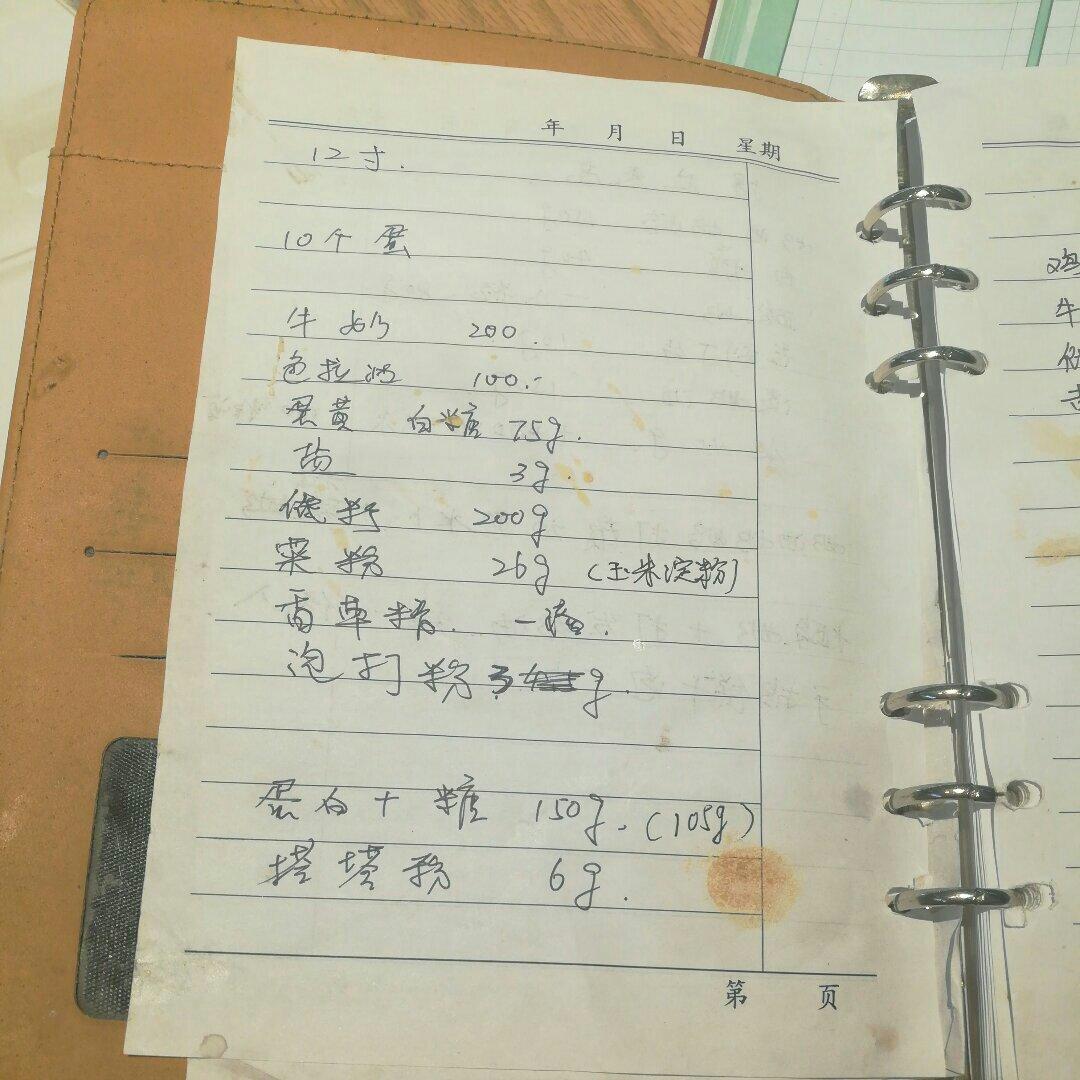 年 月 日 星期
12寸.
10个蛋
牛奶 200.
色拉油 100.
蛋黄 白糖 75g.
盐 3g.
低粉 200g
粟粉 26g (玉米淀粉)
香草精. 一
泡打粉 g.
蛋白+糖 150g. (105g)
塔塔粉 6g.
第 页
鸡
牛
低